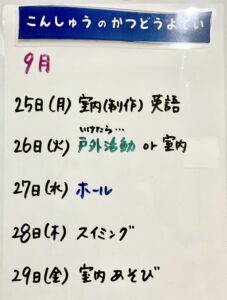 こんしゅうのかつどうよてい
9月
25日(月) 室内(制作) 英語
いけたら…
26日(火) 戸外活動 or 室内
27日(水) ホール
28日(木) スイミング
29日(金) 室内あそび